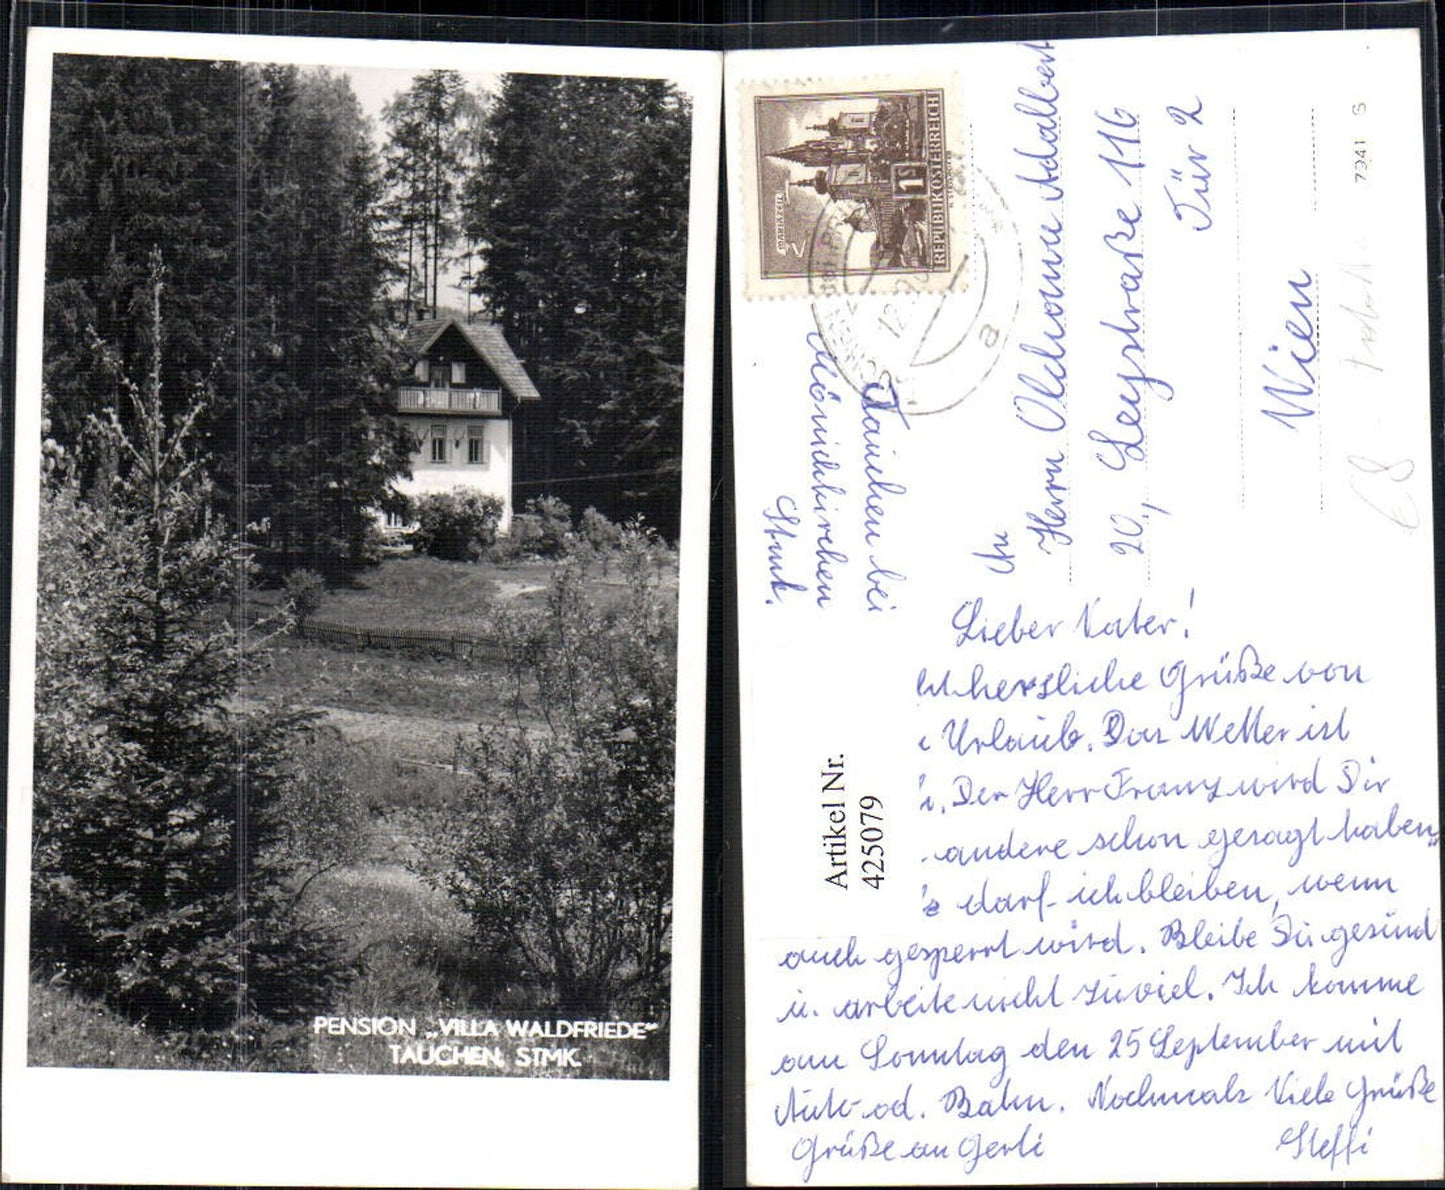 PENSION „VILLA WALDFRIEDE“
TAUCHEN, STMK.
MARIAZELL
1 S
REPUBLIK ÖSTERREICH
a
7341 S
Tauchen bei
Mönichkirchen
Stmk.
An
Herrn Adalbert
20., Leystraße 116
Tür 2
Wien
Artikel Nr.
425079
Lieber Vater!
herzliche Grüße von
Urlaub. Das Wetter ist
Der Herr Franz wird Dir
andere schon gesagt haben,
darf ich bleiben, wenn
auch gesperrt wird. Bleibe Du gesund
u. arbeite nicht zuviel. Ich komme
am Sonntag den 25 September mit
Auto od. Bahn. Nochmals Viele Grüße
Grüße an Gerti
Steffi